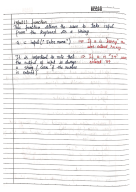 input() function
This function allows the user to take input
from the keyboard as a string.
a = input("Enter name") → If a is "harry",
user entered harry
It is important to note that → If a is "34"
the output of input is always user entered 34
a string (even if the number
is entered)